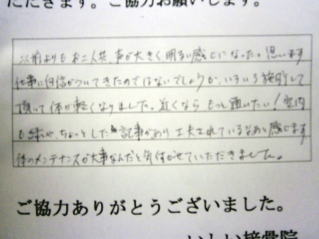 ただきます。ご協力お願いします。
以前よりもお二人共 声が大きく明るい感じになった。思います
仕事に自信がついてきたのではないでしょうか、いろいろ施術して
頂いて体が軽くなりました。近くなら もっと通いたい!室内
も ちょっとした 記事があり 工夫されているなあと感じます
体のメンテナンスが大事なんだと気付かせていただきました。
ご協力ありがとうございました。
接骨院